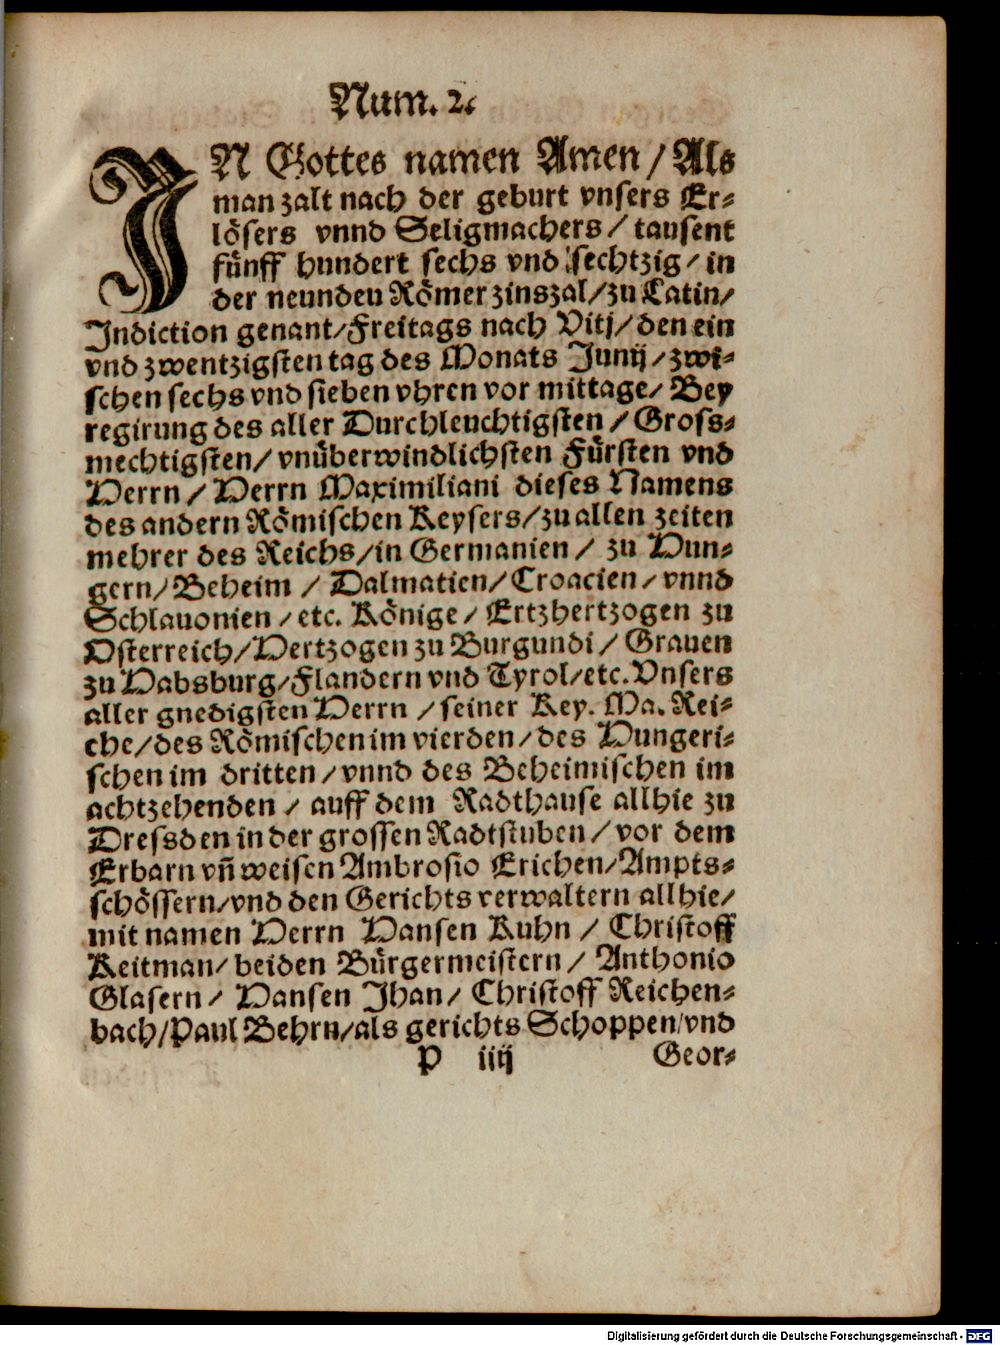 Num. 2.
IN Gottes namen Amen / Als
man zalt nach der geburt vnsers Er-
lösers vnnd Seligmachers / tausent
fünff hundert sechs vnd sechtzig / in
der neunden Römer zinszal / zu Latin /
Indiction genant / Freitags nach Vitj / den ein
vnd zwentzigsten tag des Monats Junij / zwi-
schen sechs vnd sieben vhren vor mittage / Bey
regirung des aller Durchleuchtigsten / Gross-
mechtigsten / vnüberwindlichsten Fürsten vnd
Herrn / Herrn Maximiliani dieses Namens
des andern Römischen Keysers / zu allen zeiten
mehrer des Reichs / in Germanien / zu Hun-
gern / Beheim / Dalmatien / Croacien / vnnd
Schlauonien / etc. Könige / Ertzhertzogen zu
Osterreich / Hertzogen zu Burgundi / Grauen
zu Habsburg / Flandern vnd Tyrol / etc. Vnsers
aller gnedigsten Herrn / seiner Key. Ma. Rei-
che / des Römischen im vierden / des Hungeri-
schen im dritten / vnnd des Beheimischen im
achtzehenden / auff dem Radthause allhie zu
Dressden in der grossen Radtstuben / vor dem
Erbarn vñ weisen Ambrosio Erichen / Ampts-
schössern / vnd den Gerichts verwaltern allhie /
mit namen Herrn Hansen Kuhn / Christoff
Keitman / beiden Bürgermeistern / Anthonio
Glasern / Hansen Jhan / Christoff Reichen-
bach / Paul Behrn / als gerichts Schoppen / vnd
P iiij Geor-
Digitalisierung gefördert durch die Deutsche Forschungsgemeinschaft - DFG